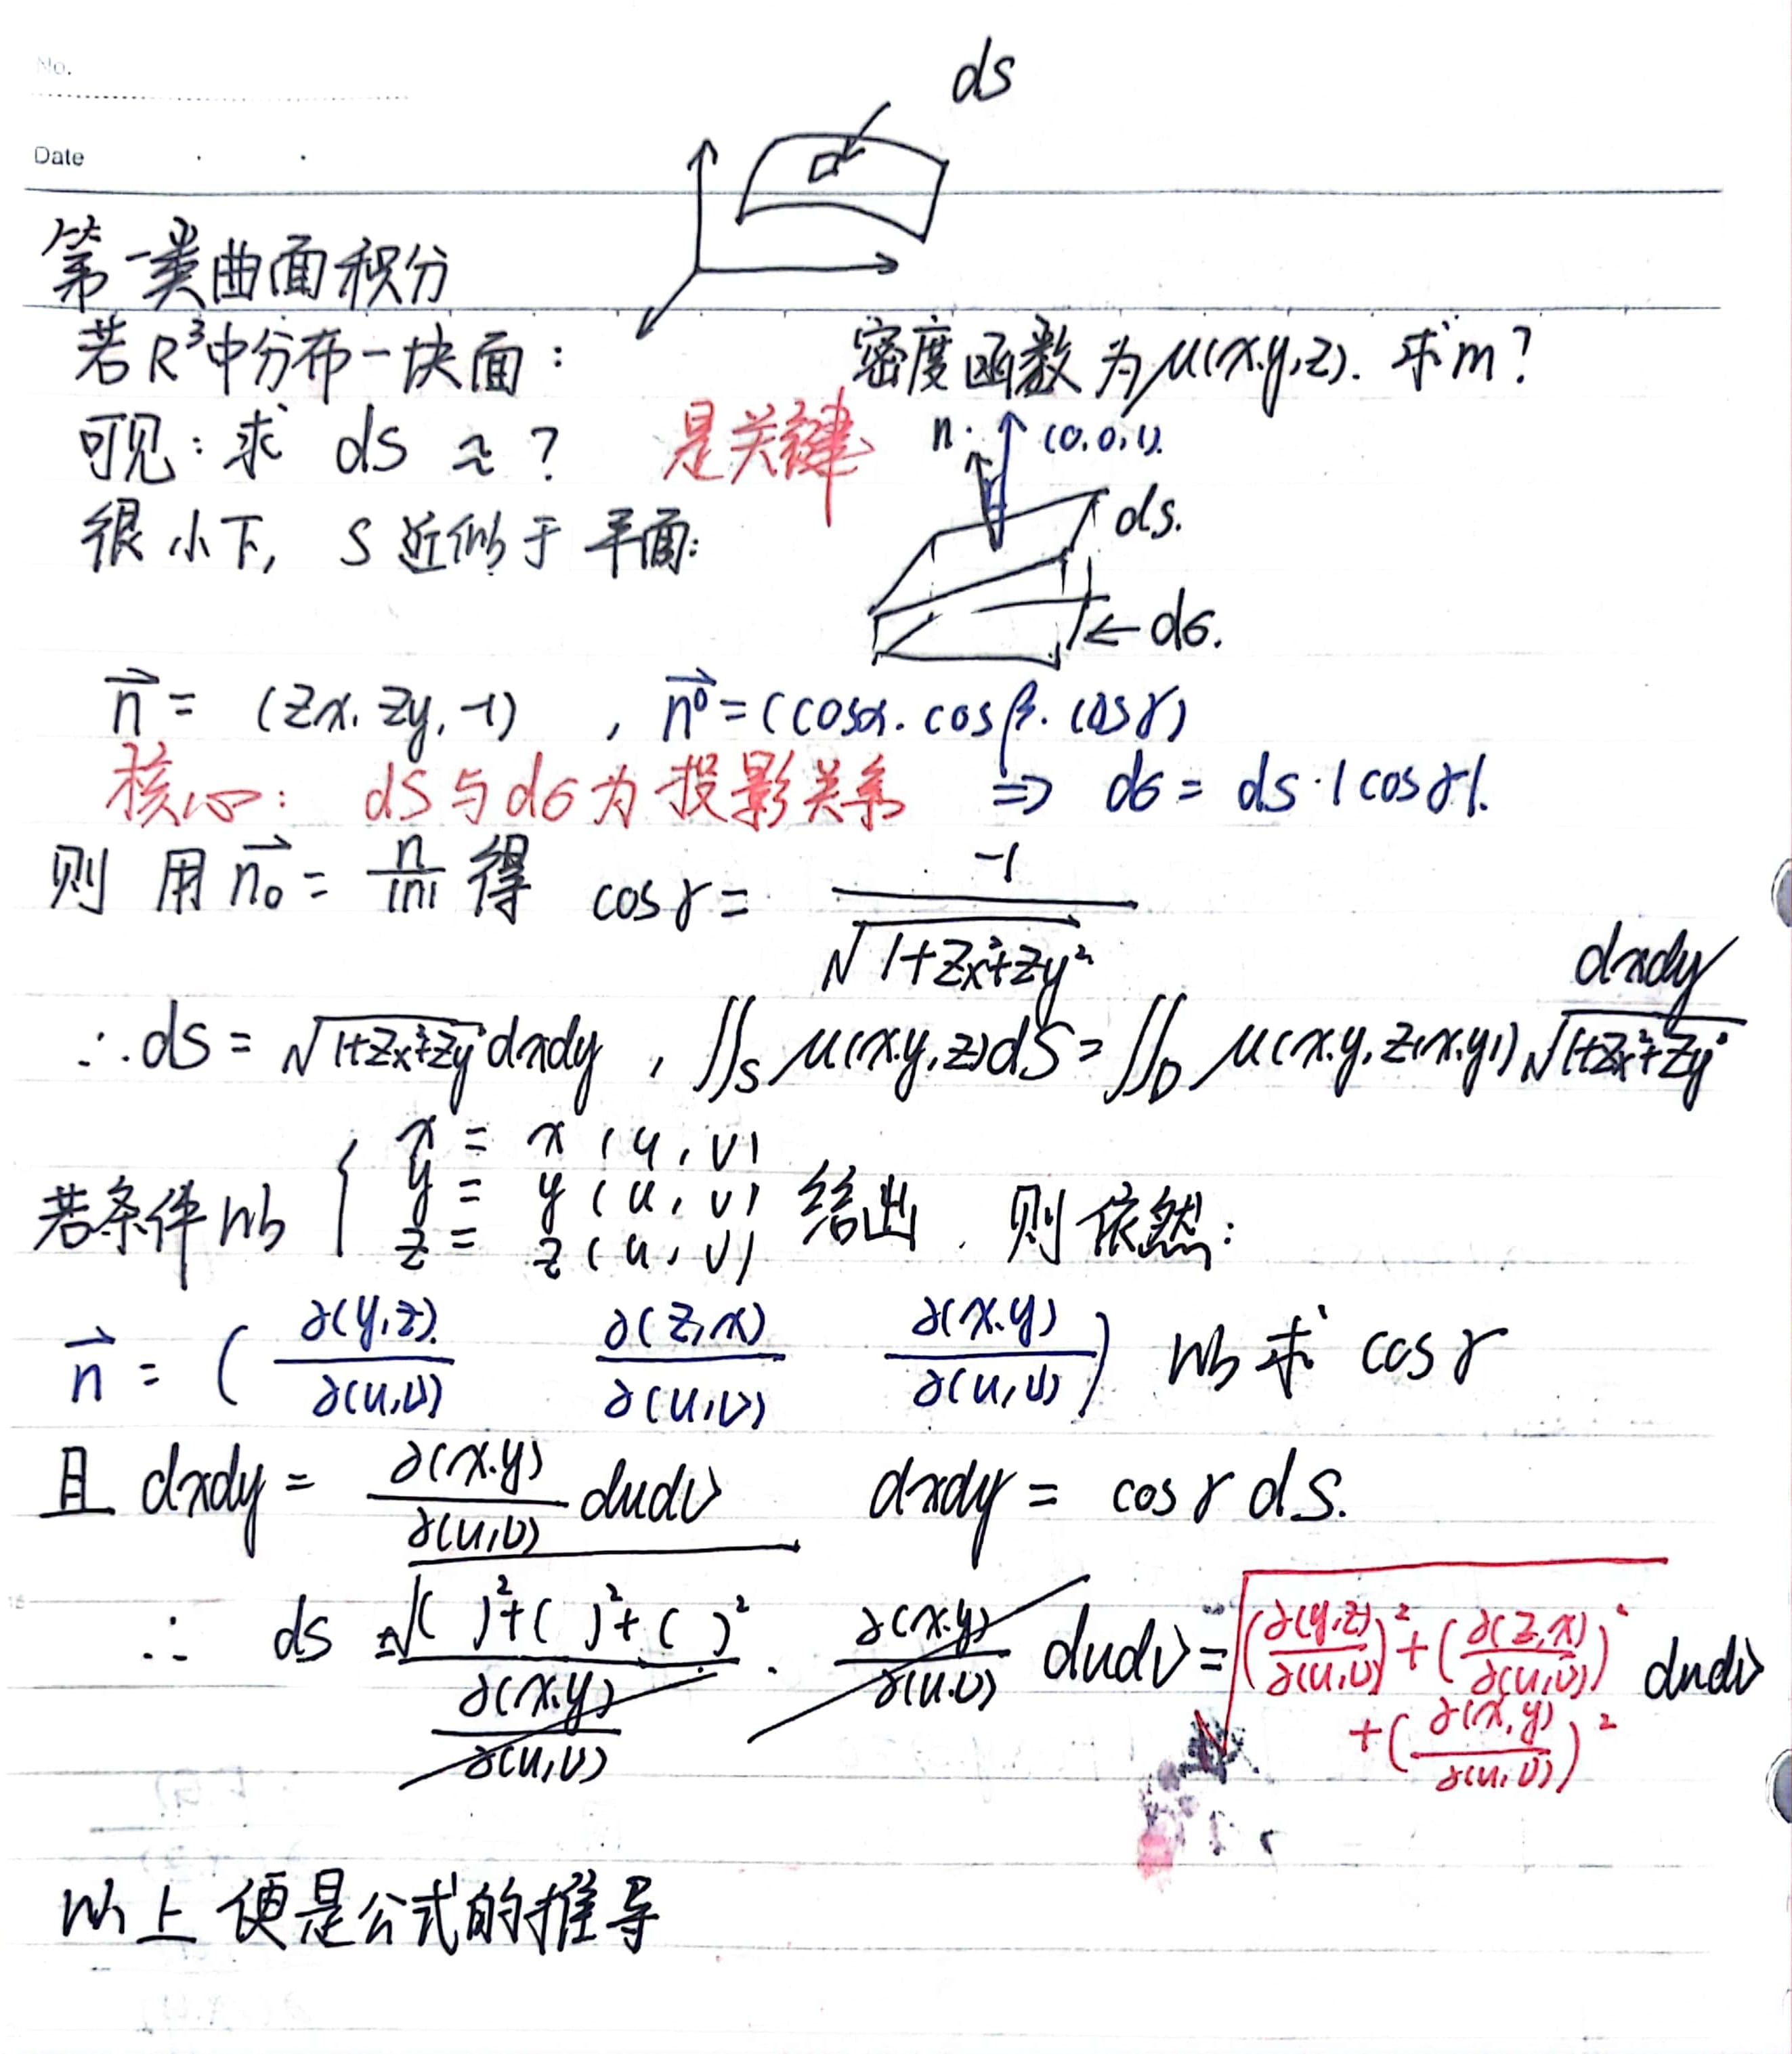 No.
Date
dS
第一类曲面积分
若R³中分布一块面： 密度函数为μ(x,y,z). 求m?
可见：求 dS ≈ ? 是关键
n. (0,0,1).
很小下, S 近似于平面:
dS.
← dσ.
n⃗ = (Zx, Zy, -1) , n⃗⁰ = (cosα. cosβ. cosγ)
核心: dS与dσ为投影关系 ⇒ dσ = dS·|cosγ|.
则 用 n⃗₀ = n/|n| 得 cosγ = -1/√(1+Zx²+Zy²)
∴ dS = √(1+Zx²+Zy²) dxdy , ∬_S μ(x,y,z)dS = ∬_D μ(x,y,z(x,y)) √(1+Zx²+Zy²) dxdy
若条件以 { x = x(u,v) y = y(u,v) z = z(u,v) 给出. 则依然:
n⃗ = ( ∂(y,z)/∂(u,v) ∂(z,x)/∂(u,v) ∂(x,y)/∂(u,v) ) 以求 cosγ
且 dxdy = ∂(x,y)/∂(u,v) dudv dxdy = cosγ dS.
∴ dS = √(( )²+( )²+( )²) / ∂(x,y)/∂(u,v) · ∂(x,y)/∂(u,v) dudv = √((∂(y,z)/∂(u,v))² + (∂(z,x)/∂(u,v))² + (∂(x,y)/∂(u,v))²) dudv
以上便是公式的推导